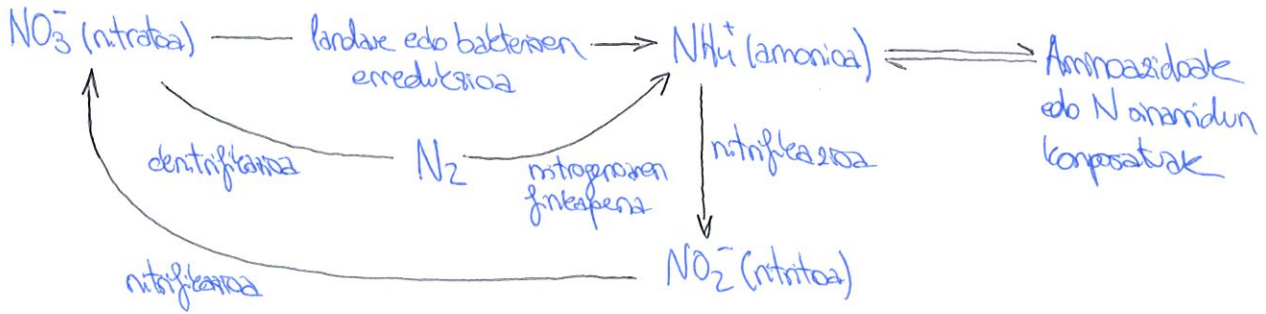 NO₃⁻ (nitratoa)
landare edo bakterioen
erredukzioa
NH₄⁺ (amonioa)
Aminoazidoak
edo N oinarridun
konposatuak
dentrifikazioa
N₂
nitrogenoaren
finkapena
nitrifikazioa
NO₂⁻ (nitritoa)
nitrifikazioa